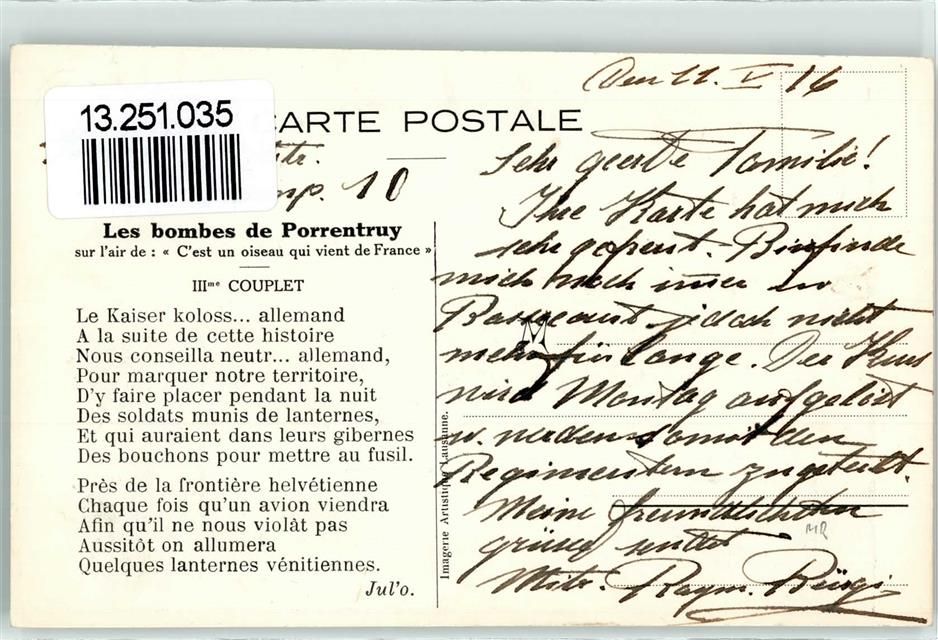 Den 11. V 16
13.251.035
CARTE POSTALE
Mitr.
Komp. 10
Les bombes de Porrentruy
sur l'air de : « C'est un oiseau qui vient de France »
IIIme COUPLET
Le Kaiser koloss... allemand
A la suite de cette histoire
Nous conseilla neutr... allemand,
Pour marquer notre territoire,
D'y faire placer pendant la nuit
Des soldats munis de lanternes,
Et qui auraient dans leurs gibernes
Des bouchons pour mettre au fusil.
Près de la frontière helvétienne
Chaque fois qu'un avion viendra
Afin qu'il ne nous violât pas
Aussitôt on allumera
Quelques lanternes vénitiennes.
Jul'o.
Imagerie Artistique Lausanne.
Sehr geerte Familie!
Ihre Karte hat mich
sehr gefreut. Binfinde
mich noch imer in
Bassecourt jedoch nicht
mehr für lange. Der Kurs
wird Montag aufgelöst
u. werden somit den
Regimentern zugeteilt.
Meine freundlichsten
grüsse sendet
Mitr. Raym. Bürgi
MR